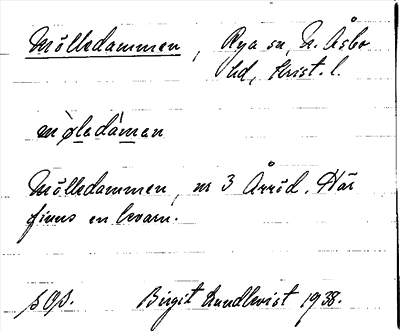 Mölledammen, Rya sn, N. Åsbo
hd, Krist. l.
mø̀ledàman
Mölledammen, nr 3 Årröd. Här
finns en kvarn.
s. 93.
Birgit Lundkvist 1938.